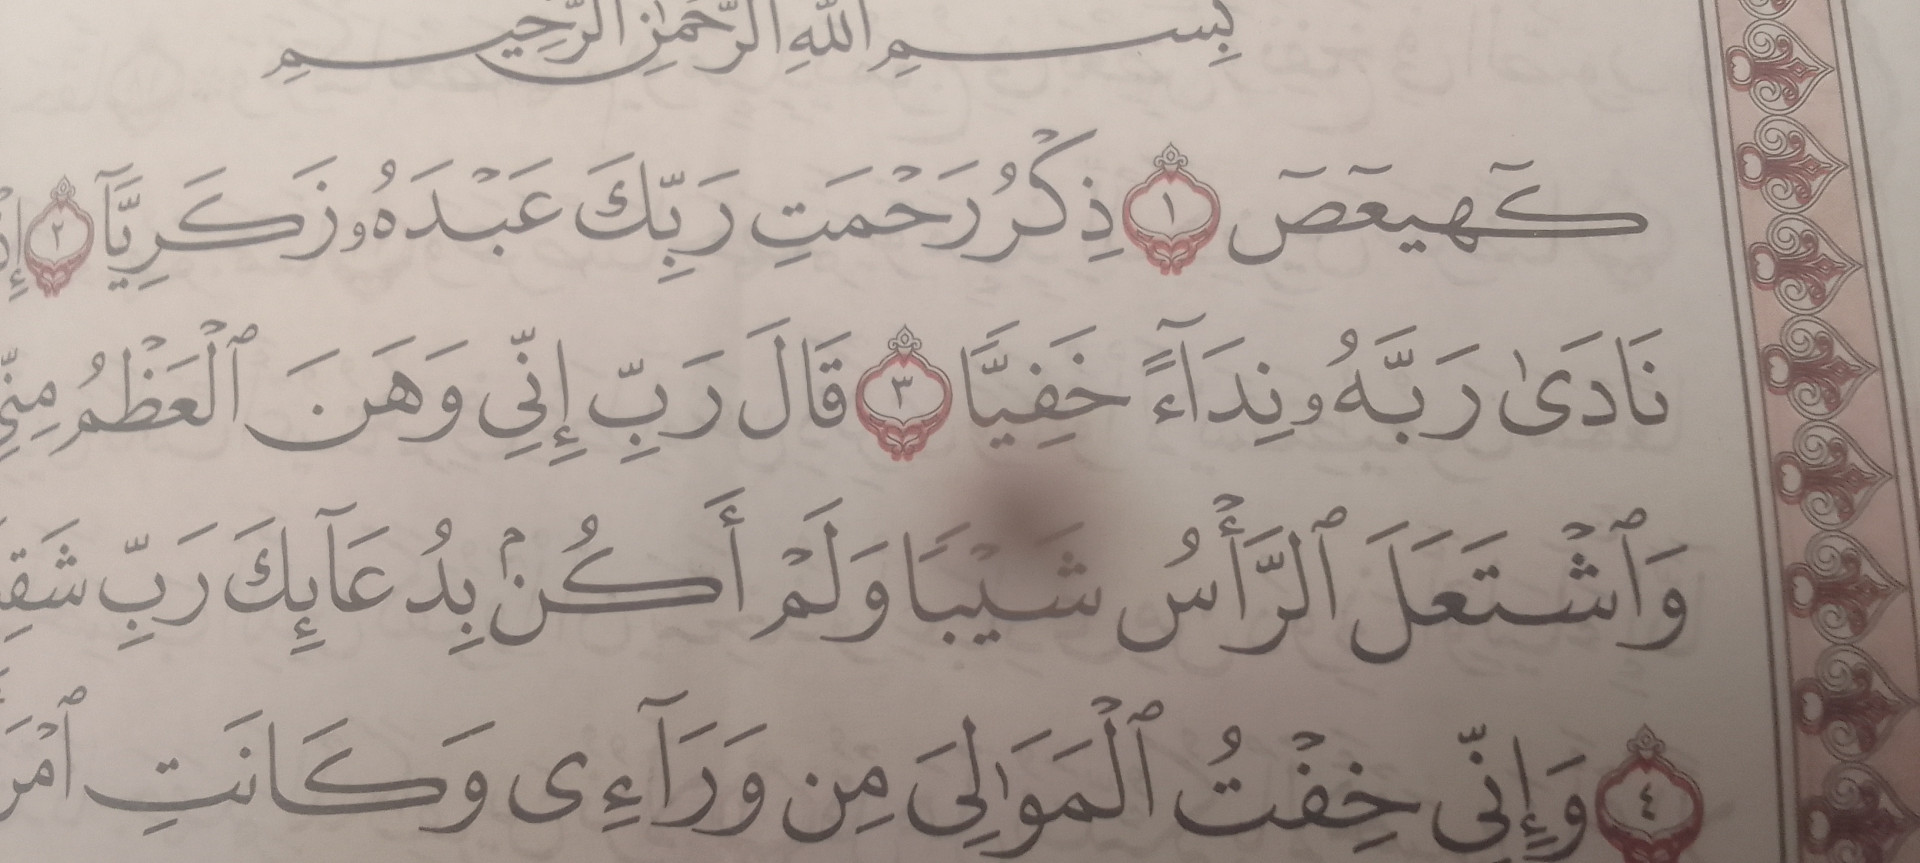 بِسْمِ ٱللَّهِ ٱلرَّحْمَٰنِ ٱلرَّحِيمِ
كٓهيعٓصٓ ١ ذِكْرُ رَحْمَتِ رَبِّكَ عَبْدَهُۥ زَكَرِيَّآ ٢
نَادَىٰ رَبَّهُۥ نِدَآءً خَفِيًّا ٣ قَالَ رَبِّ إِنِّي وَهَنَ ٱلْعَظْمُ مِنِّي
وَٱشْتَعَلَ ٱلرَّأْسُ شَيْبًا وَلَمْ أَكُنۢ بِدُعَآئِكَ رَبِّ
٤ وَإِنِّي خِفْتُ ٱلْمَوَٰلِىَ مِن وَرَآءِى وَكَانَتِ